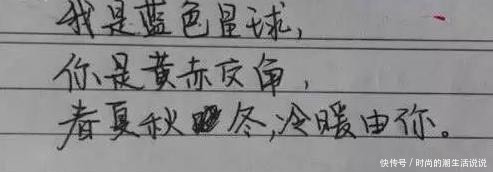 我是蓝色星球,
你是黄赤交角,
春夏秋冬,冷暖由你。
快传号/时尚的潮生活说说